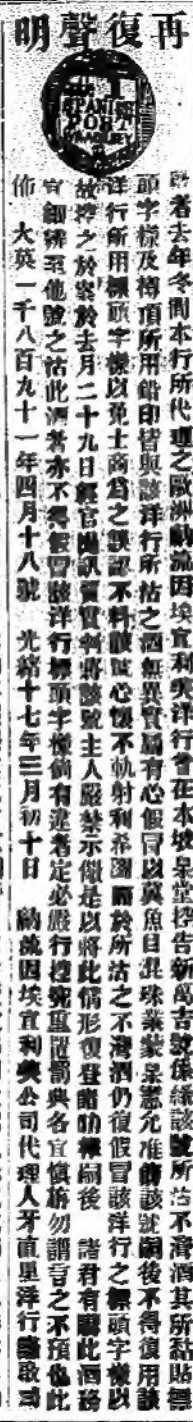 再復聲明
SPANISH
PORT
啓者去年冬間本行所代理之歐洲納流因埃宜利興洋行曾在本坡臬堂控告新萬吉號係緣該號所沽不濟酒其所黏貼標
頭字樣及樽頂所用鉛印皆與該洋行所沽之酒無異實屬有心假冒以冀魚目混珠業蒙臬憲允准飭該號嗣後不得復用該
洋行所用標頭字樣以免士商爲之誤認不料該號心懷不軌射利希圖而於所沽之不濟酒仍復假冒該洋行之標頭字樣以
故控之於案於去月二十九日經官提訊質實判將該號主人嚴禁示儆是以將此情形復登諸叻報嗣後 諸君有關此酒務
宜細辨至他號之沽此酒者亦不得假冒該洋行標頭字樣倘有違者定必嚴行控究重置罰典各宜愼旃勿謂言之不預也此
佈 大英一千八百九十一年四月十八號 光緒十七年三月初十日 納流因埃宜利興公司代理人牙直里洋行謹啟